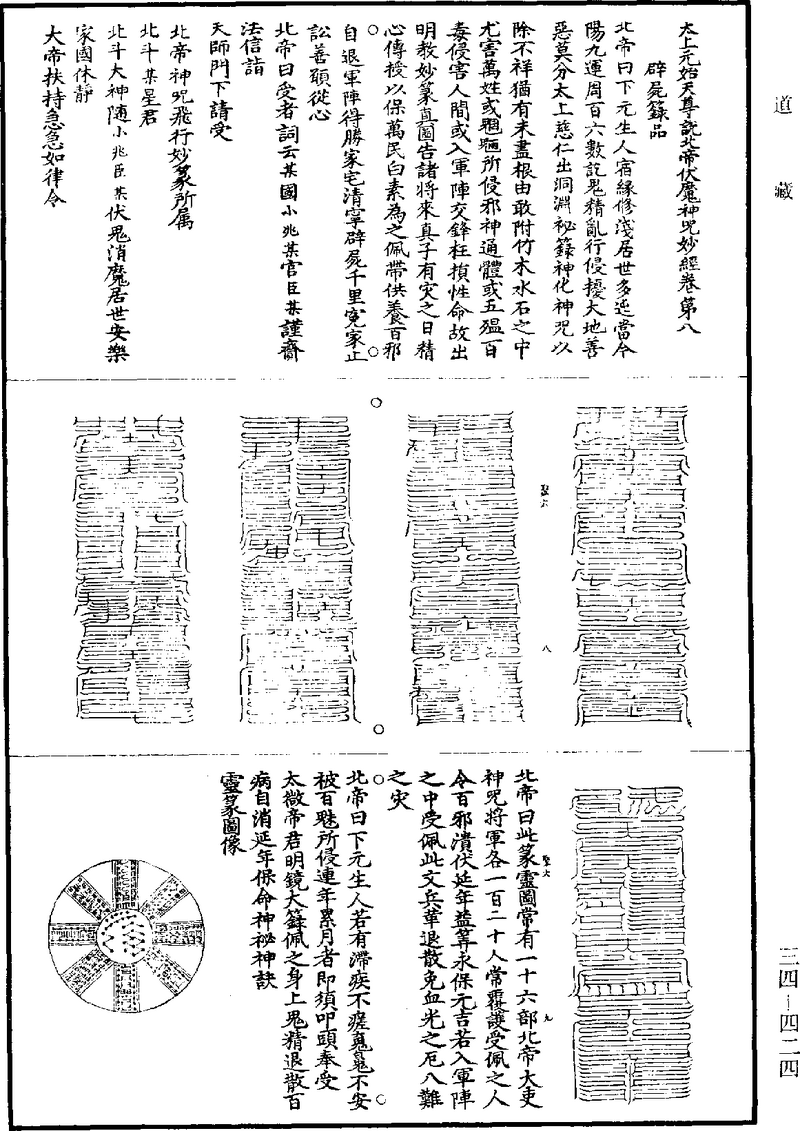 道藏
太上元始天尊說北帝伏魔神咒妙經卷第八
辟屍籙品
北帝曰下元生人宿緣修淺居世多迍當今
陽九運周百六數訖鬼精亂行侵擾大地善
惡莫分太上慈仁出洞淵祕籙神化神咒以
除不祥猶有未盡根由敢附竹木水石之中
尤害萬姓或魍魎所侵邪神通體或五瘟百
毒侵害人間或入軍陣交鋒枉損性命故出
明教妙篆真圖告諸將來真子有灾之日精
心傳授以保萬民白素為之佩帶供養百邪
自退軍陣得勝家宅清寧辟屍千里寃家止
訟善願從心
北帝曰受者詞云某國小兆某官臣某謹齋
法信詣
天師門下請受
北帝神咒飛行妙篆所屬
北斗某星君
北斗大神隨小兆臣某伏鬼消魔居世安樂
家國休靜
大帝扶持急急如律令
聖六
八
北帝曰此篆靈圖常有一十六部北帝大吏
神咒將軍各一百二十人常覆護受佩之人
令百邪潰伏延年益筭永保元吉若入軍陣
之中受佩此文兵革退散免血光之厄八難
之灾
北帝曰下元生人若有滯疾不瘥魂魄不安
被百魅所侵連年累月者即須叩頭奉受
太微帝君明鏡大籙佩之身上鬼精退散百
病自消延年保命神祕神訣
靈篆圖像
聖六
九
三四—四二四